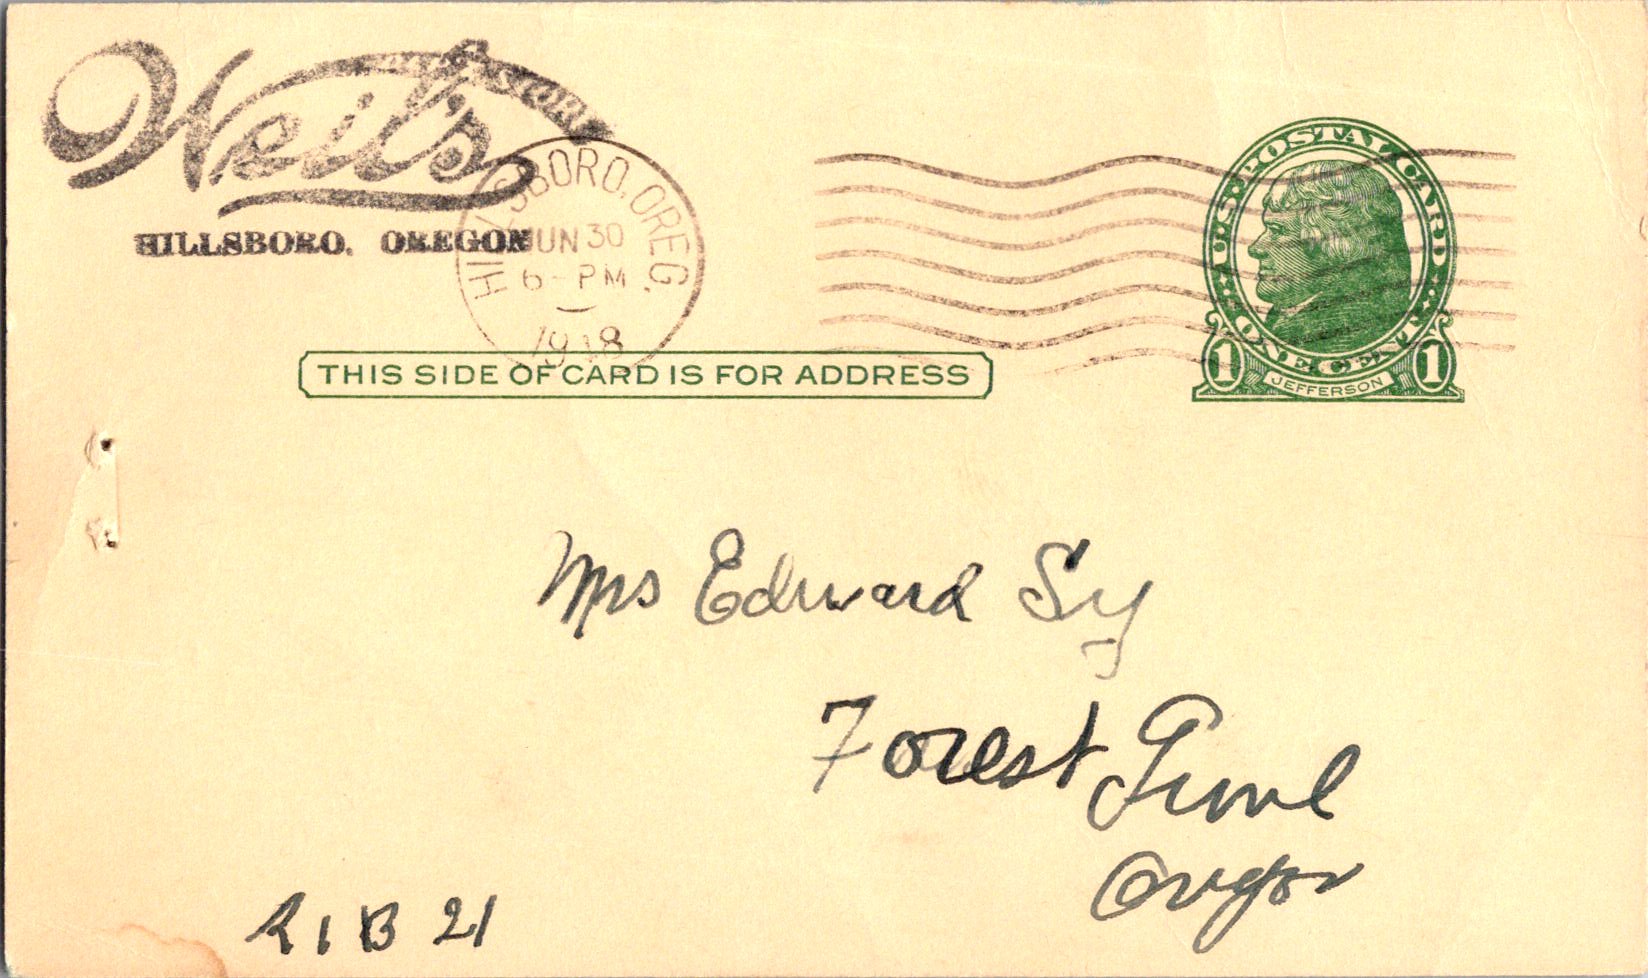 Weil's
STORE
HILLSBORO, OREGON
HILLSBORO, OREG.
JUN 30
6 - PM
THIS SIDE OF CARD IS FOR ADDRESS
U.S. POSTAL CARD
ONE CENT
1 JEFFERSON 1
Mrs Edward Sy
Forest Grove
Oregon
R 1 B 21